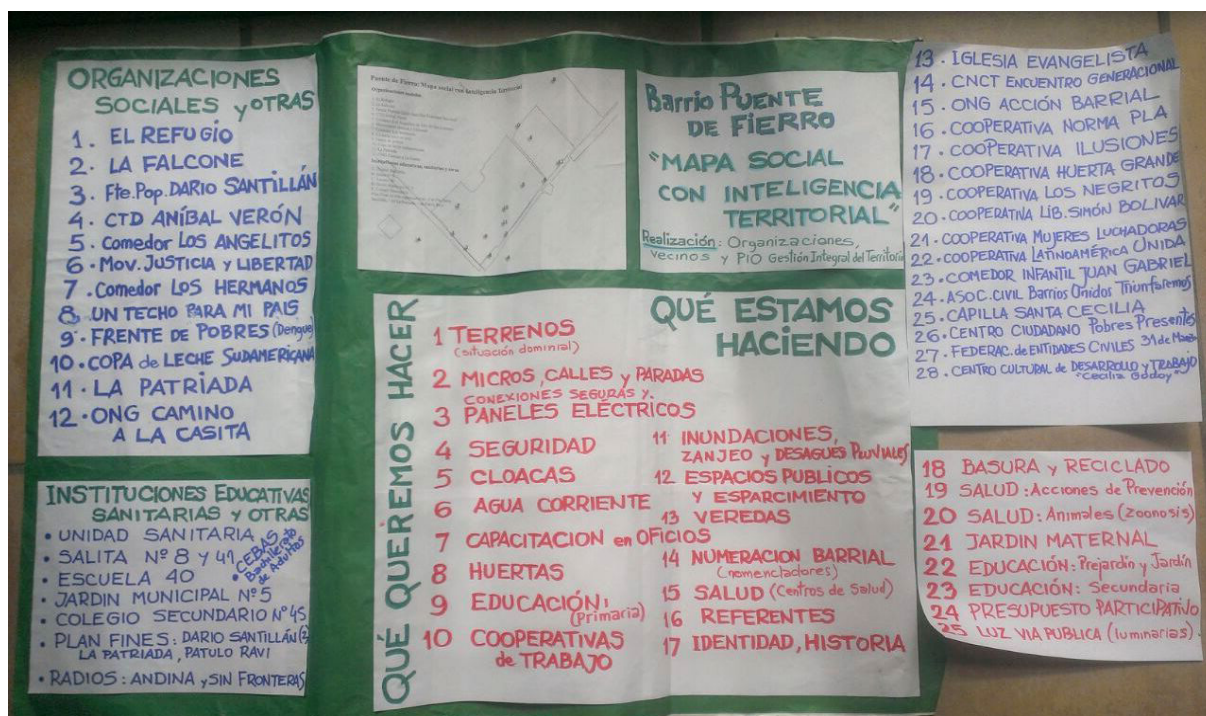 ORGANIZACIONES
SOCIALES y OTRAS
1. EL REFUGIO
2. LA FALCONE
3. Fte.Pop. DARIO SANTILLÁN
4. CTD ANÍBAL VERÓN
5. Comedor LOS ANGELITOS
6. Mov. JUSTICIA y LIBERTAD
7. Comedor LOS HERMANOS
8. UN TECHO PARA MI PAIS
9. FRENTE DE POBRES (Dengue)
10. COPA de LECHE SUDAMERICANA
11. LA PATRIADA
12. ONG CAMINO
A LA CASITA
INSTITUCIONES EDUCATIVAS
SANITARIAS y OTRAS
• UNIDAD SANITARIA
• SALITA Nº 8 y 41
• CEBAS
Bachillerato
de Adultos
• ESCUELA 40
• JARDIN MUNICIPAL Nº 5
• COLEGIO SECUNDARIO Nº 45
• PLAN FINES: DARIO SANTILLÁN
LA PATRIADA, PATULO RAVI
• RADIOS: ANDINA y SIN FRONTERAS
Puente de Fierro: Mapa social con Inteligencia Territorial
Barrio PUENTE
DE FIERRO
"MAPA SOCIAL
CON INTELIGENCIA
TERRITORIAL"
Realización: Organizaciones,
vecinos y PIO Gestión Integral del Territorio
QUÉ QUEREMOS HACER
QUÉ ESTAMOS
HACIENDO
1 TERRENOS
(situación dominial)
2 MICROS, CALLES y PARADAS
CONEXIONES SEGURAS y.
3 PANELES ELÉCTRICOS
4 SEGURIDAD
5 CLOACAS
6 AGUA CORRIENTE
7 CAPACITACION en OFICIOS
8 HUERTAS
9 EDUCACIÓN:
(Primaria)
10 COOPERATIVAS
de TRABAJO
11 INUNDACIONES,
ZANJEO y DESAGUES PLUVIALES
12 ESPACIOS PUBLICOS
Y ESPARCIMIENTO
13 VEREDAS
14 NUMERACION BARRIAL
(nomencladores)
15 SALUD (Centros de Salud)
16 REFERENTES
17 IDENTIDAD, HISTORIA
13. IGLESIA EVANGELISTA
14. CNCT ENCUENTRO GENERACIONAL
15. ONG ACCIÓN BARRIAL
16. COOPERATIVA NORMA PLA
17. COOPERATIVA ILUSIONES
18. COOPERATIVA HUERTA GRANDE
19. COOPERATIVA LOS NEGRITOS
20. COOPERATIVA LIB. SIMÓN BOLIVAR
21. COOPERATIVA MUJERES LUCHADORAS
22. COOPERATIVA LATINOAMÉRICA UNIDA
23. COMEDOR INFANTIL JUAN GABRIEL
24. ASOC. CIVIL Barrios Unidos Triunfaremos
25. CAPILLA SANTA CECILIA
26. CENTRO CIUDADANO Pobres Presentes
27. FEDERAC. de ENTIDADES CIVILES 31 de
28. CENTRO CULTURAL de DESARROLLO y TRABAJO
"Cecilia Godoy"
18 BASURA y RECICLADO
19 SALUD: Acciones de Prevención
20 SALUD: Animales (Zoonosis)
21 JARDIN MATERNAL
22 EDUCACIÓN: Prejardin y Jardín
23 EDUCACIÓN: Secundaria
24 PRESUPUESTO PARTICIPATIVO
25 LUZ VIA PUBLICA (luminarias).